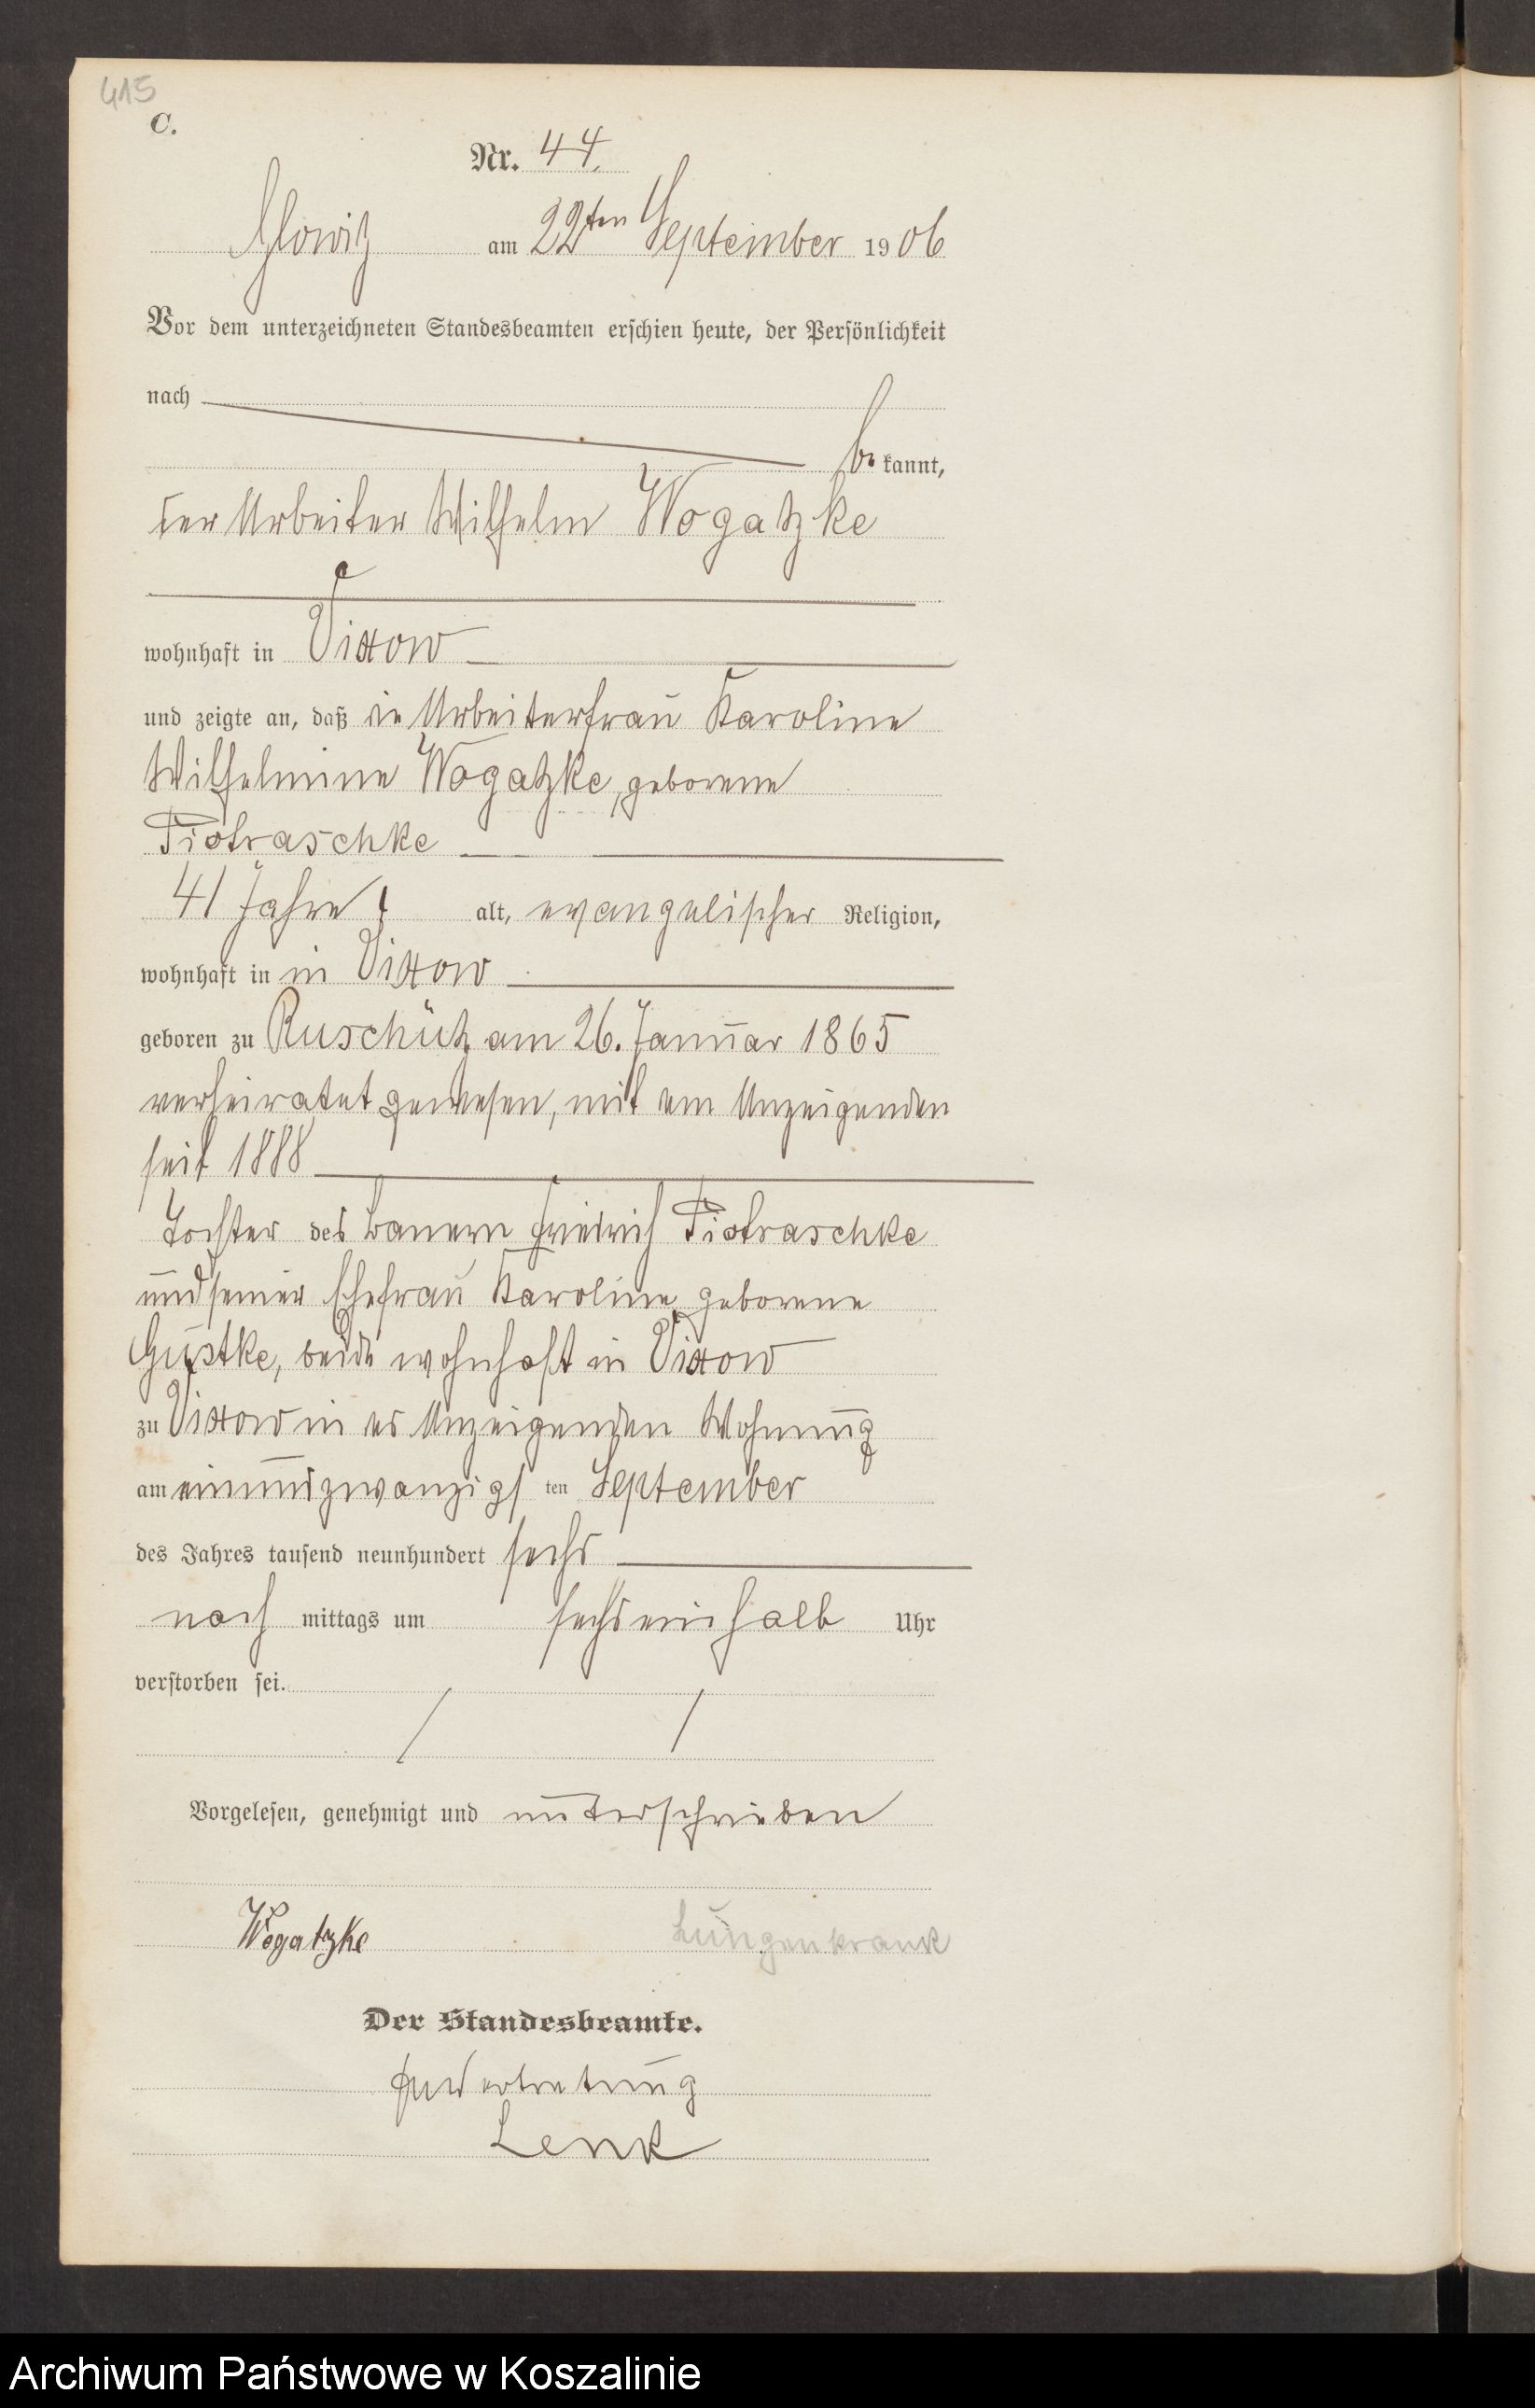 415
C.
Nr. 44.
Glowitz am 22ten September 1906
Vor dem unterzeichneten Standesbeamten erschien heute, der Persönlichkeit
nach
be kannt,
der Arbeiter Wilhelm Wogatzke
wohnhaft in Vixow
und zeigte an, daß die Arbeiterfrau Karoline
Wilhelmine Wogatzke, geborene
Piotraschke
41 Jahre alt, evangelischer Religion,
wohnhaft in in Vixow
geboren zu Ruschütz am 26. Januar 1865
verheiratet gewesen, mit dem Anzeigenden
seit 1888
Tochter des Bauern Friedrich Piotraschke
und seiner Ehefrau Karoline geborene
Gustke, beide wohnhaft in Vixow
zu Vixow in des Anzeigenden Wohnung
am einundzwanzigs ten September
des Jahres tausend neunhundert sechs
nach mittags um sechseinhalb Uhr
verstorben sei.
Vorgelesen, genehmigt und unterschrieben
Wogatzke Lungenkrank
Der Standesbeamte.
In Vertretung
Lenk
Archiwum Państwowe w Koszalinie